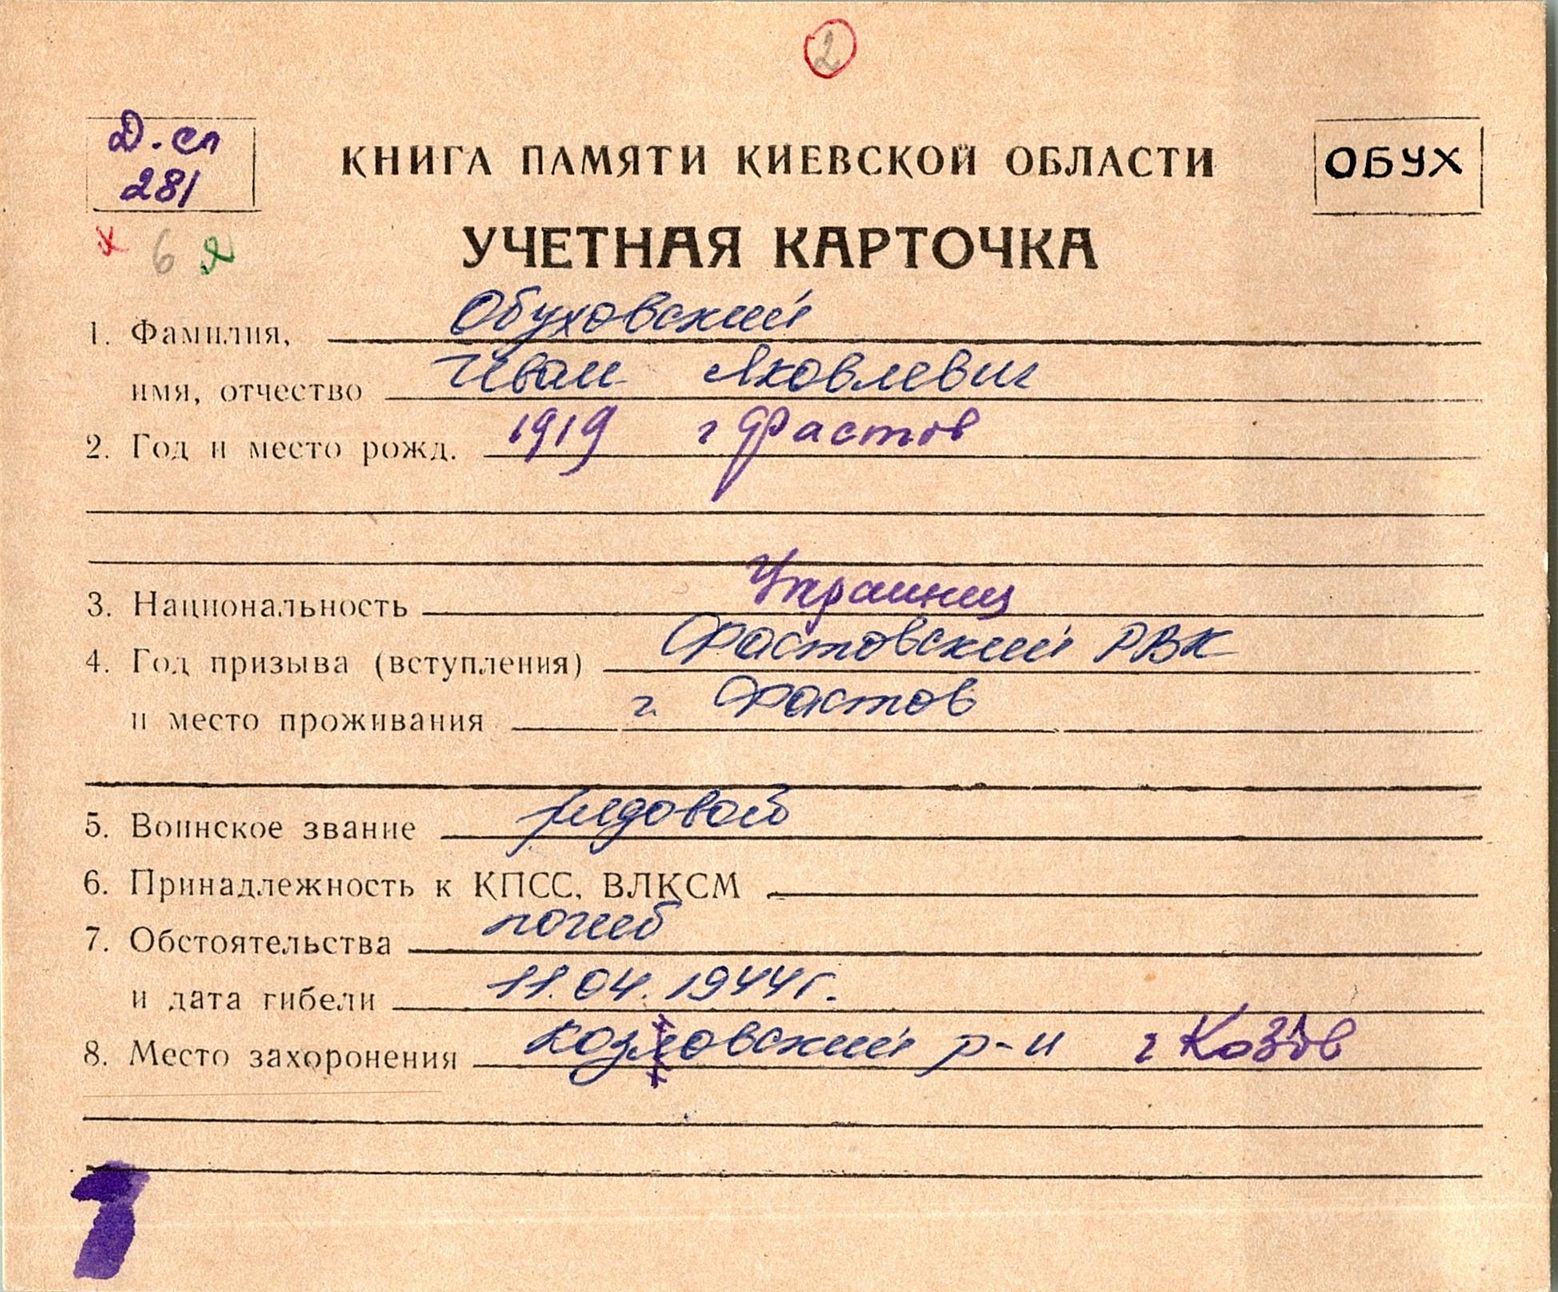 2
Д.сл
281
КНИГА ПАМЯТИ КИЕВСКОЙ ОБЛАСТИ
ОБУХ
6 Я
УЧЕТНАЯ КАРТОЧКА
1. Фамилия, Обуховский
имя, отчество Иван Яковлевич
2. Год и место рожд. 1919 г Фастов
3. Национальность Украинец
4. Год призыва (вступления) Фастовский РВК
и место проживания г. Фастов
5. Воинское звание рядовой
6. Принадлежность к КПСС, ВЛКСМ
7. Обстоятельства погиб
и дата гибели 11.04.1944г.
8. Место захоронения Козловский р-н г Козов
1